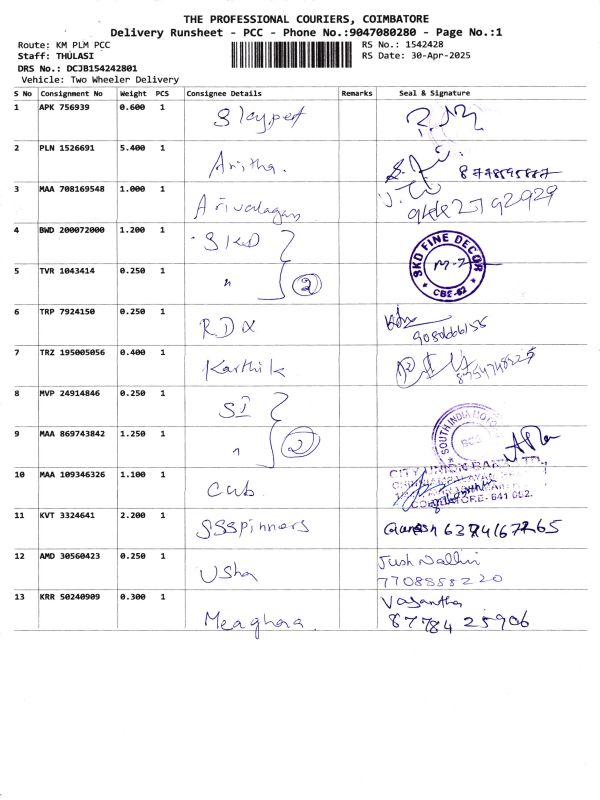 THE PROFESSIONAL COURIERS, COIMBATORE
Delivery Runsheet - PCC - Phone No.:9047080280 - Page No.:1
Route: KM PLM PCC RS No.: 1542428
Staff: THULASI RS Date: 30-Apr-2025
DRS No.: DCJB154242801
Vehicle: Two Wheeler Delivery
S No Consignment No Weight PCS Consignee Details Remarks Seal & Signature
1 APK 756939 0.600 1
2 PLN 1526691 5.400 1 Anitha.
3 MAA 708169548 1.000 1 Arivalagan
4 BWD 200072000 1.200 1 SKD
SKD FINE DECOR
CBE-62
5 TVR 1043414 0.250 1 " 2
6 TRP 7924150 0.250 1 RDX
7 TRZ 195005056 0.400 1 Karthik
8 MVP 24914846 0.250 1 SI
SOUTH INDIA MOTO
9 MAA 869743842 1.250 1 " 2
10 MAA 109346326 1.100 1 cub.
CITY UNION BANK LTD.
COIMBATORE- 641 062.
11 KVT 3324641 2.200 1 SSSpinners Ganesh
12 AMD 30560423 0.250 1 Usha
7708858220
13 KRR 50240909 0.300 1 Meaghaa. Vasantha
87784 25906